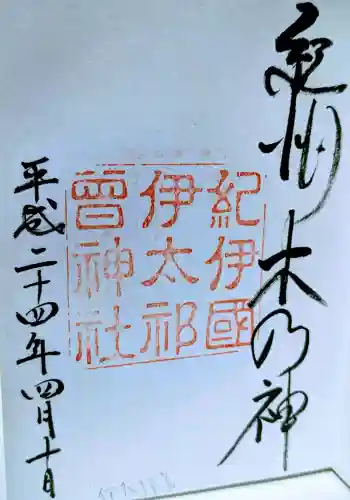 紀州木の神
紀伊國
伊太祁
曾神社
平成二十四年四月十日